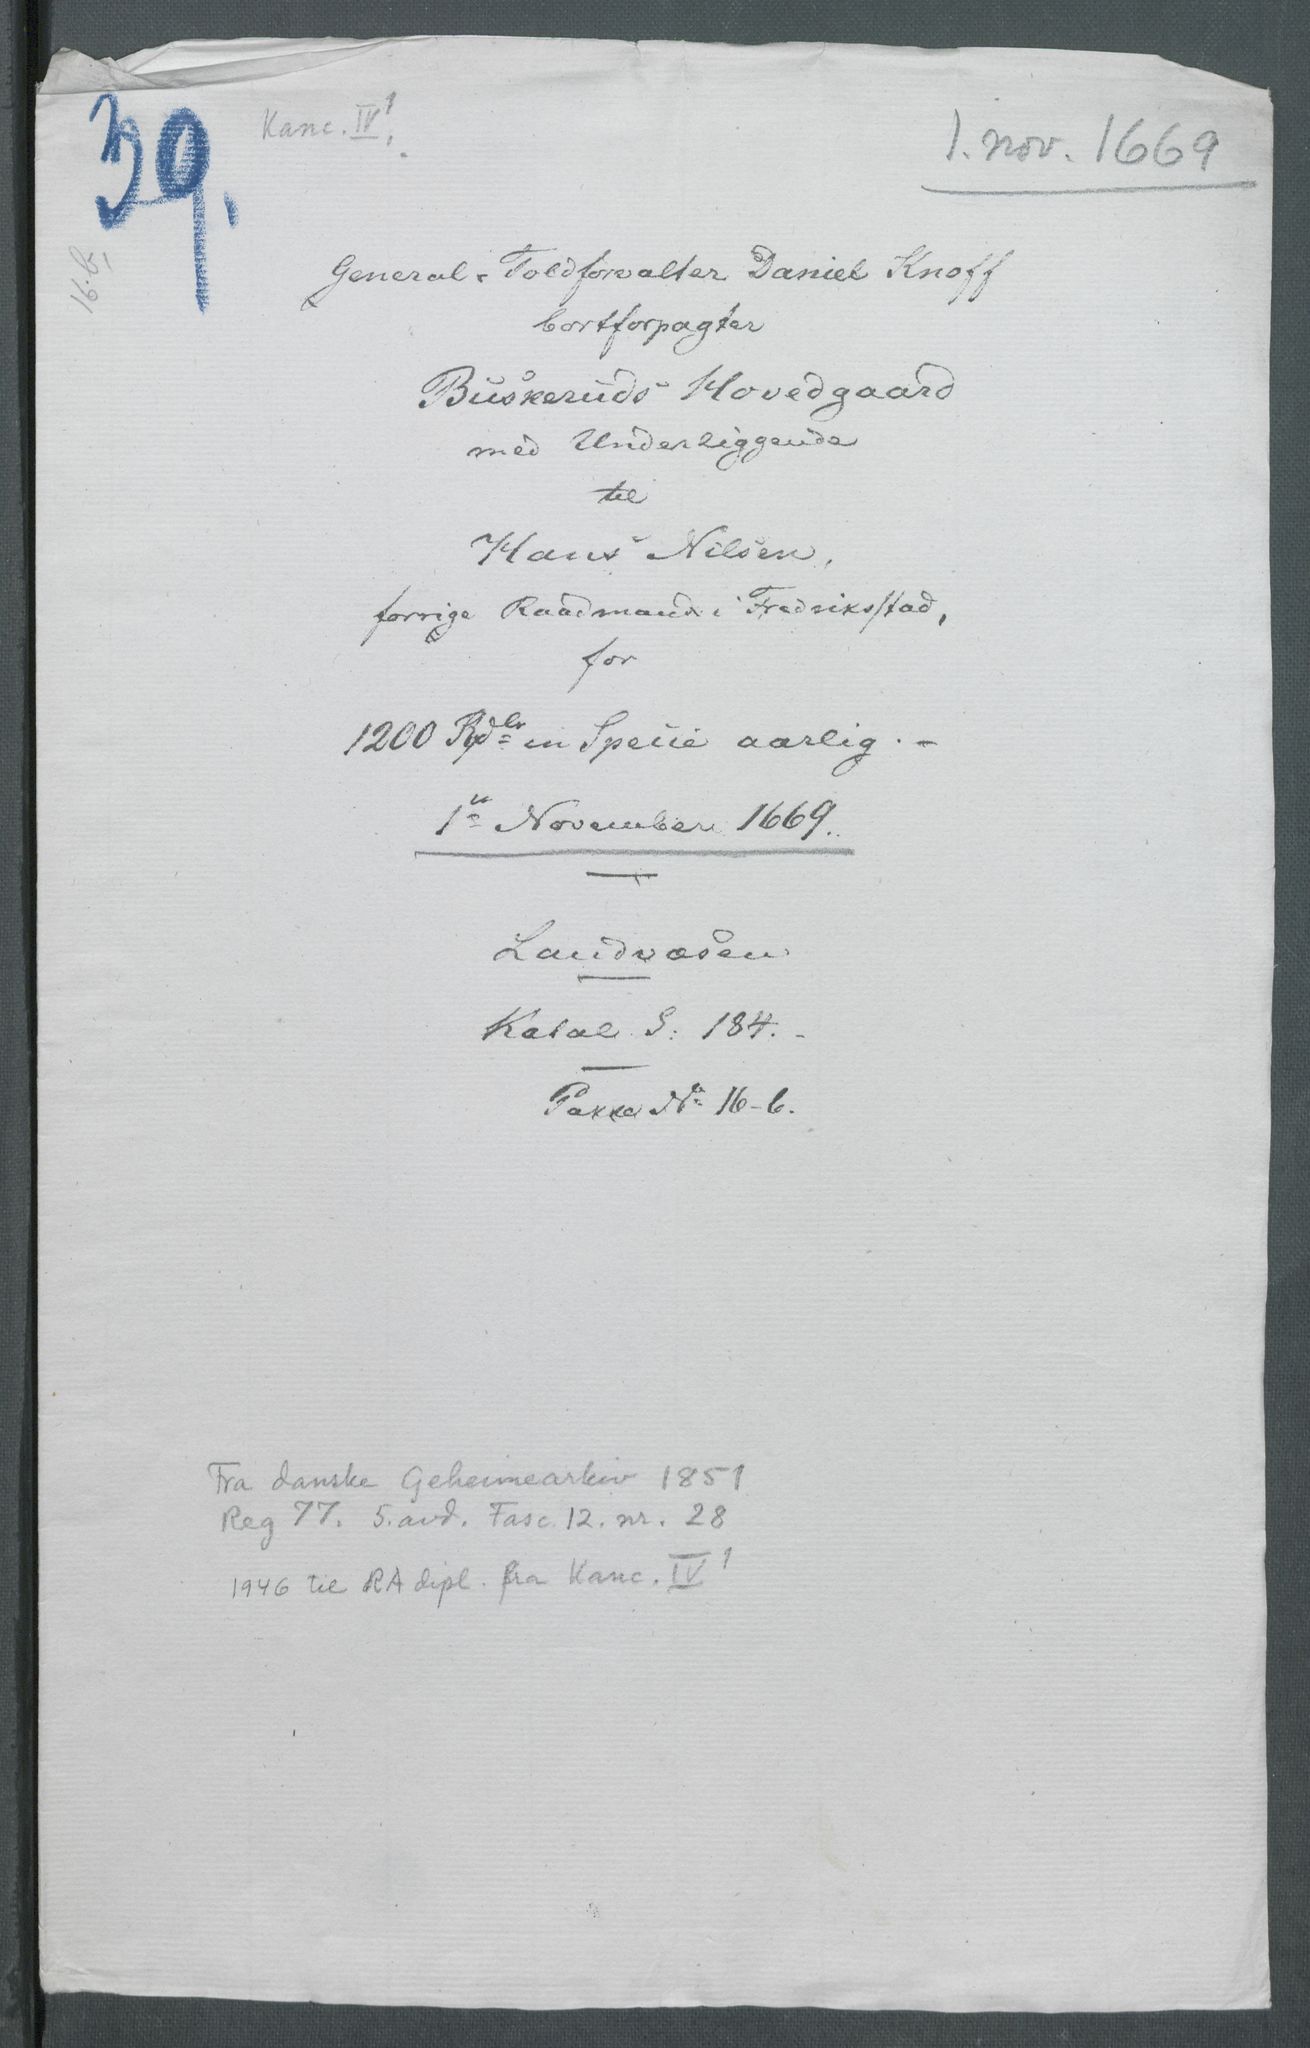 39.
Kanc. IV¹.
1. nov. 1669
16.b.
General-Toldforvalter Daniel Knoff
bortforpagter
Buskeruds Hovedgaard
med Underliggende
til
Hans Nilsen,
forrige Raadmand i Fredriksstad,
for
1200 Rdlr in Specie aarlig. –
1te November 1669.
Landvæsen
Katal S: 184. –
Pakke No 16-b.
Fra danske Geheimearkiv 1851
Reg 77. 5. avd. Fasc. 12. nr. 28
1946 til RA dipl. fra Kanc. IV¹